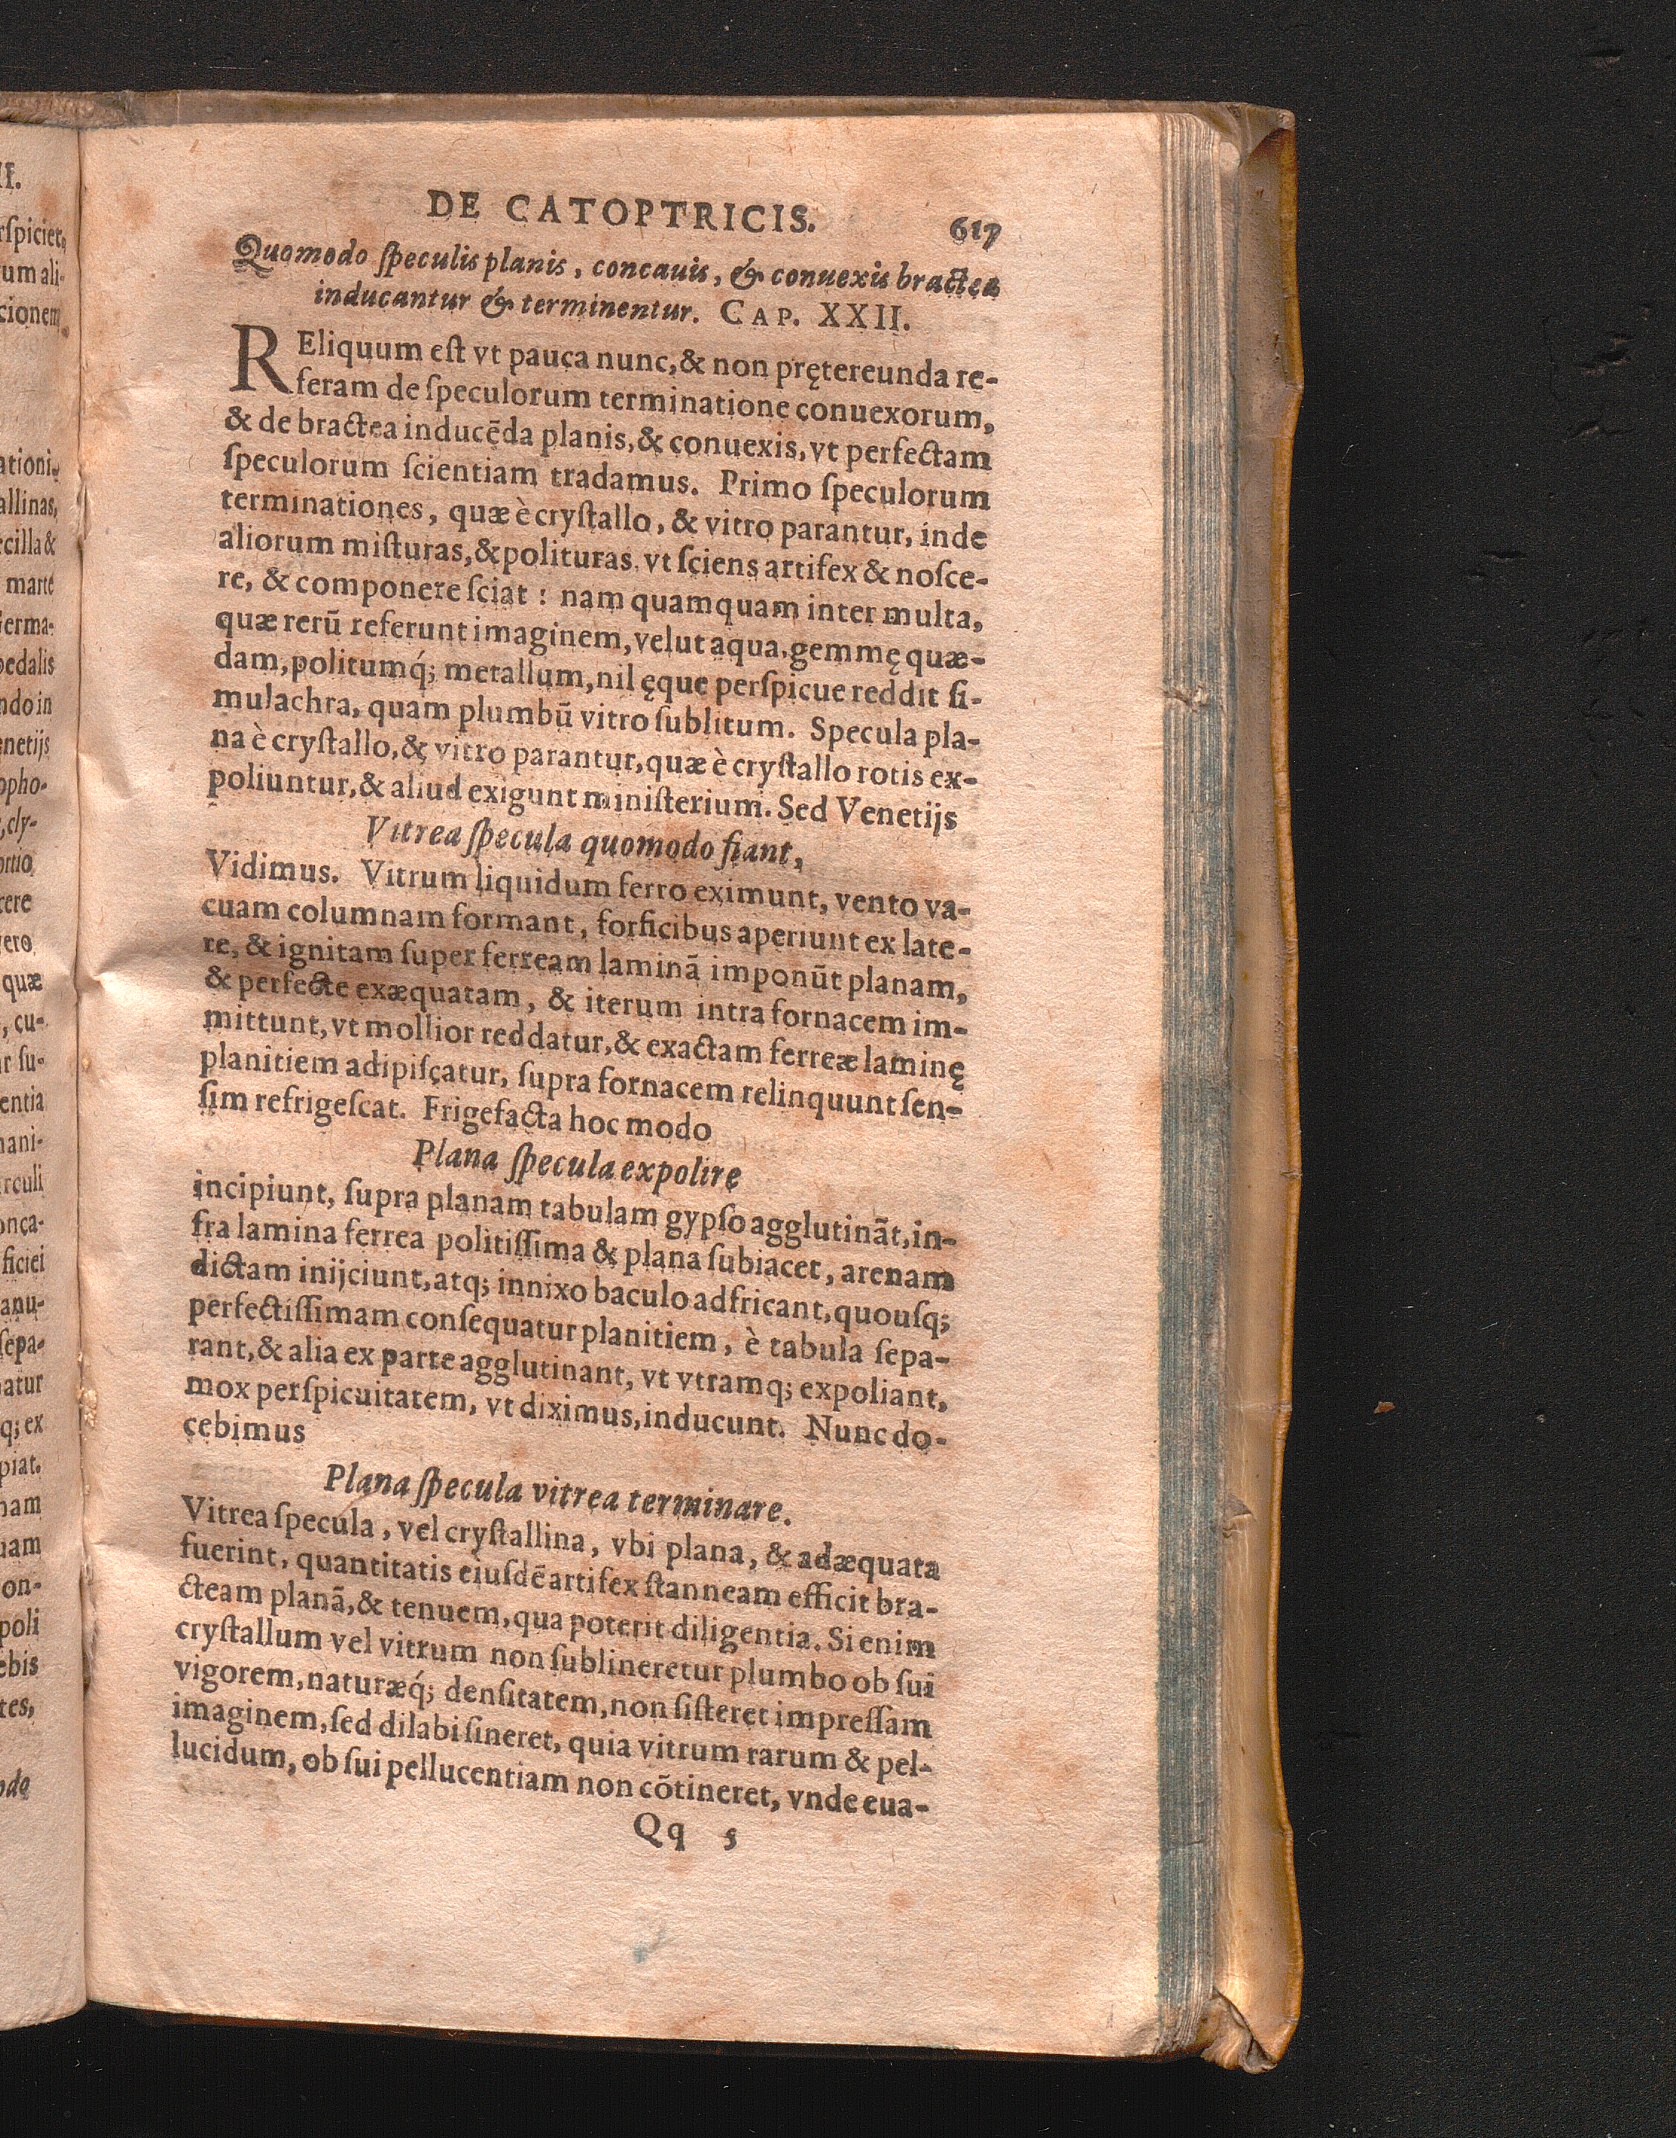 DE CATOPTRICIS. 617
Quomodo ſpeculis planis, concauis, & conuexis bractea
inducantur & terminentur. CAP. XXII.
REliquum eſt vt pauca nunc, & non prętereunda re-
feram de ſpeculorum terminatione conuexorum,
& de bractea inducēda planis, & conuexis, vt perfectam
ſpeculorum ſcientiam tradamus. Primo ſpeculorum
terminationes, quæ è cryſtallo, & vitro parantur, inde
aliorum miſturas, & polituras, vt ſciens artifex & noſce-
re, & componere ſciat : nam quamquam inter multa,
quæ rerū referunt imaginem, velut aqua, gemmę quæ-
dam, politumq́; metallum, nil ęque perſpicue reddit ſi-
mulachra, quam plumbū vitro ſublitum. Specula pla-
na è cryſtallo, & vitro parantur, quæ è cryſtallo rotis ex-
poliuntur, & aliud exigunt miniſterium. Sed Venetijs
Vitrea ſpecula quomodo fiant,
Vidimus. Vitrum liquidum ferro eximunt, vento va-
cuam columnam formant, forficibus aperiunt ex late-
re, & ignitam ſuper ferream laminā imponūt planam,
& perfecte exæquatam, & iterum intra fornacem im-
mittunt, vt mollior reddatur, & exactam ferreæ laminę
planitiem adipiſcatur, ſupra fornacem relinquunt ſen-
ſim refrigeſcat. Frigefacta hoc modo
Plana ſpecula expolire
incipiunt, ſupra planam tabulam gypſo agglutināt, in-
fra lamina ferrea politiſſima & plana ſubiacet, arenam
dictam inijciunt, atq; innixo baculo adfricant, quouſq;
perfectiſſimam conſequatur planitiem, è tabula ſepa-
rant, & alia ex parte agglutinant, vt vtramq; expoliant,
mox perſpicuitatem, vt diximus, inducunt. Nunc do-
cebimus
Plana ſpecula vitrea terminare.
Vitrea ſpecula, vel cryſtallina, vbi plana, & adæquata
fuerint, quantitatis eiuſdē artifex ſtanneam efficit bra-
cteam planā, & tenuem, qua poterit diligentia. Si enim
cryſtallum vel vitrum non ſublineretur plumbo ob ſui
vigorem, naturæq́; denſitatem, non ſiſteret impreſſam
imaginem, ſed dilabi ſineret, quia vitrum rarum & pel-
lucidum, ob ſui pellucentiam non cōtineret, vnde eua-
Qq 5